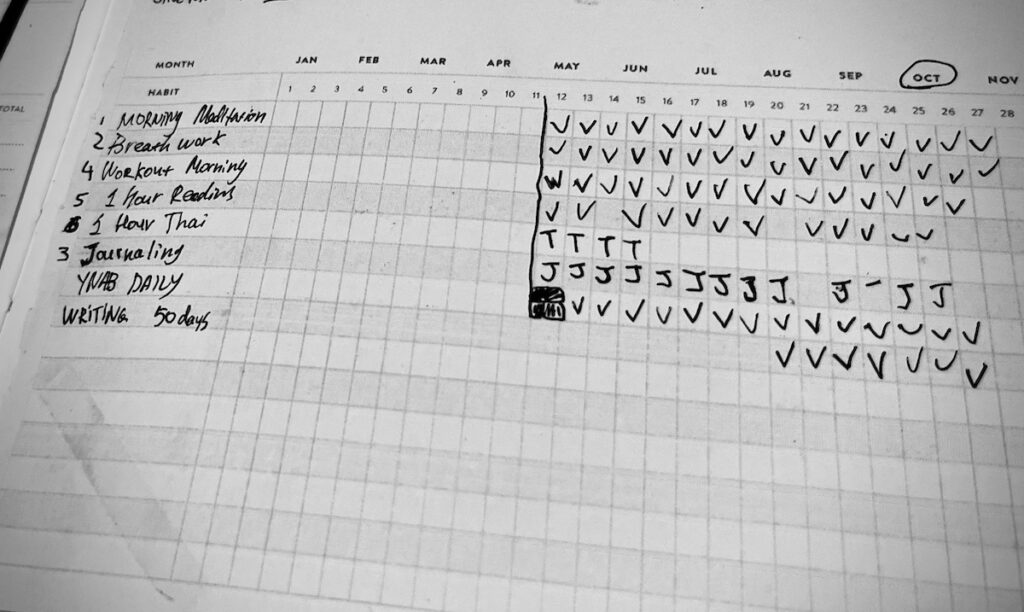 MONTH JAN FEB MAR APR MAY JUN JUL AUG SEP OCT NOV
HABIT 1 2 3 4 5 6 7 8 9 10 11 12 13 14 15 16 17 18 19 20 21 22 23 24 25 26 27 28
TOTAL
1 MORNING Meditation
2 Breath work
4 Workout Morning
5 1 Hour Reading
6 1 Hour Thai T T T T
3 Journaling J J J J J J J J J J - J J
YNAB DAILY
WRITING 50 days